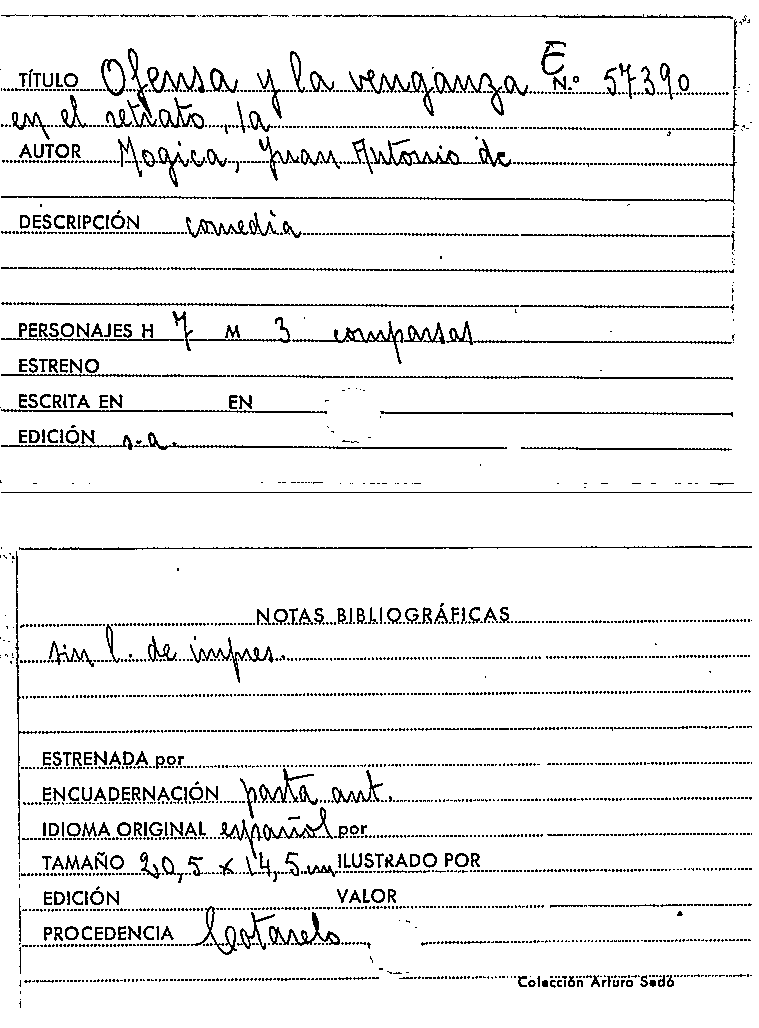 TÍTULO Ofensa y la venganza E N.º 57390
en el retrato, la
AUTOR Mogica, Juan Antonio de
DESCRIPCIÓN comedia
PERSONAJES H 7 M 3 comparsas
ESTRENO
ESCRITA EN EN
EDICIÓN s.a.
NOTAS BIBLIOGRÁFICAS
sin l. de impres.
ESTRENADA por
ENCUADERNACIÓN pasta ant.
IDIOMA ORIGINAL español por
TAMAÑO 20,5 x 14,5 cm ILUSTRADO POR
EDICIÓN VALOR
PROCEDENCIA Cotarelo
Colección Arturo Sedó